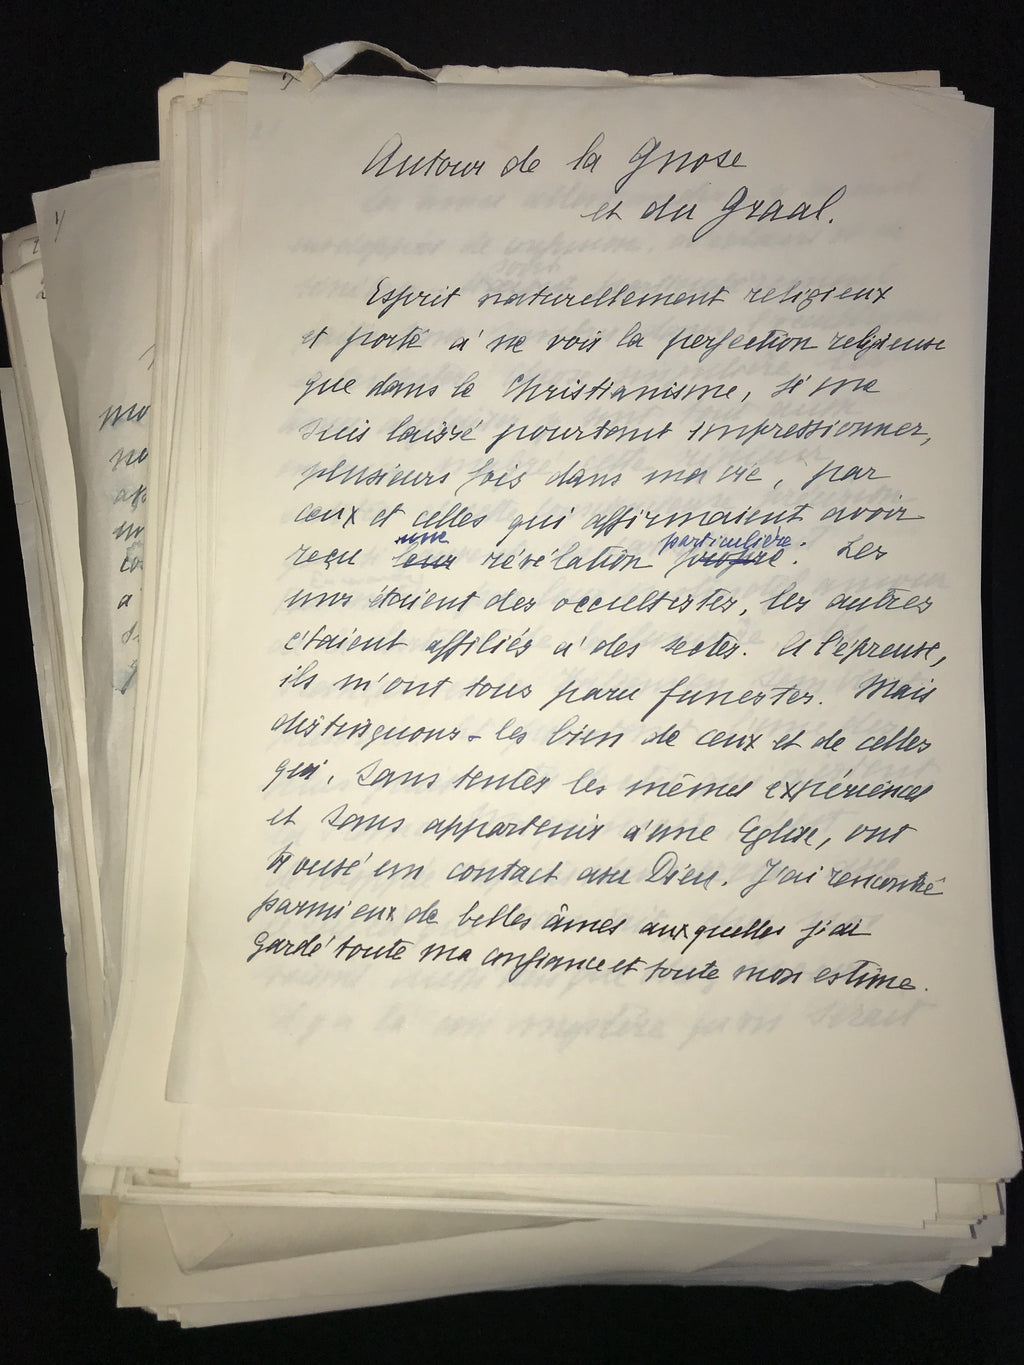 Autour de la Gnose
et du Graal.
Esprit naturellement religieux
et porté à ne voir la perfection religieuse
que dans le Christianisme, je me
suis laissé pourtant impressionner,
plusieurs fois dans ma vie, par
ceux et celles qui affirmaient avoir
une particulière.
reçu leur révélation propre. Les
uns étaient des occultistes, les autres
étaient affiliés à des sectes. A l'épreuve,
ils m'ont tous paru funestes. Mais
distinguons-les bien de ceux et de celles
qui, sans tenter les mêmes expériences
et sans appartenir à une Eglise, ont
trouvé un contact avec Dieu. J'ai rencontré
parmi eux de belles âmes auxquelles j'ai
gardé toute ma confiance et toute mon estime.